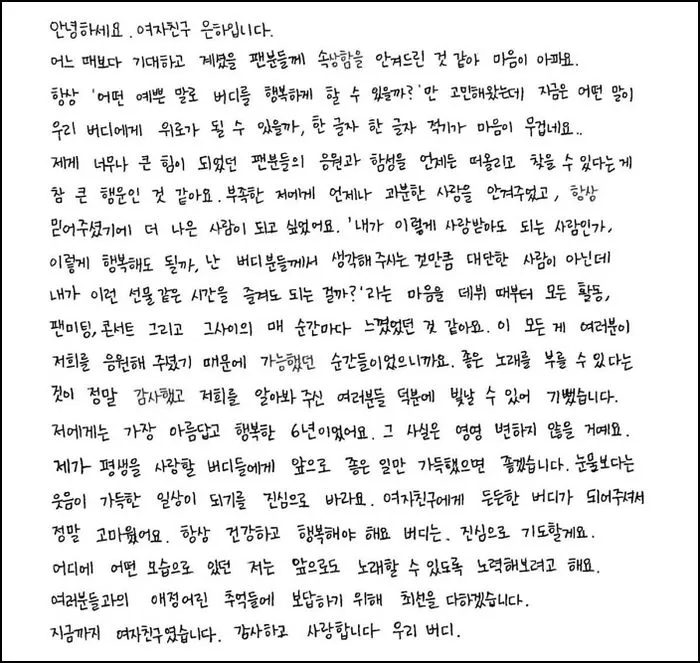 안녕하세요. 여자친구 은하입니다.
어느 때보다 기대하고 계셨을 팬분들께 속상함을 안겨드린 것 같아 마음이 아파요.
항상 '어떤 예쁜 말로 버디를 행복하게 할 수 있을까?'만 고민해왔는데 지금은 어떤 말이
우리 버디에게 위로가 될 수 있을까, 한 글자 한 글자 적기가 마음이 무겁네요..
제게 너무나 큰 힘이 되었던 팬분들의 응원과 함성을 언제든 떠올리고 찾을 수 있다는 게
참 큰 행운인 것 같아요. 부족한 저에게 언제나 과분한 사랑을 안겨주었고, 항상
믿어주셨기에 더 나은 사람이 되고 싶었어요. '내가 이렇게 사랑받아도 되는 사람인가,
이렇게 행복해도 될까, 난 버디분들께서 생각해 주시는 것만큼 대단한 사람이 아닌데
내가 이런 선물같은 시간을 즐겨도 되는 걸까?'라는 마음을 데뷔 때부터 모든 활동,
팬미팅, 콘서트 그리고 그사이의 매 순간마다 느꼈었던 것 같아요. 이 모든 게 여러분이
저희를 응원해 주셨기 때문에 가능했던 순간들이었으니까요. 좋은 노래를 부를 수 있다는
것이 정말 감사했고 저희를 알아봐 주신 여러분들 덕분에 빛날 수 있어 기뻤습니다.
저에게는 가장 아름답고 행복한 6년이었어요. 그 사실은 영영 변하지 않을 거예요.
제가 평생을 사랑할 버디들에게 앞으로 좋은 일만 가득했으면 좋겠습니다. 눈물보다는
웃음이 가득한 일상이 되기를 진심으로 바라요. 여자친구에게 든든한 버디가 되어주셔서
정말 고마웠어요. 항상 건강하고 행복해야 해요 버디는. 진심으로 기도할게요.
어디에 어떤 모습으로 있던 저는 앞으로도 노래할 수 있도록 노력해보려고 해요.
여러분들과의 애정어린 추억들에 보답하기 위해 최선을 다하겠습니다.
지금까지 여자친구였습니다. 감사하고 사랑합니다 우리 버디.